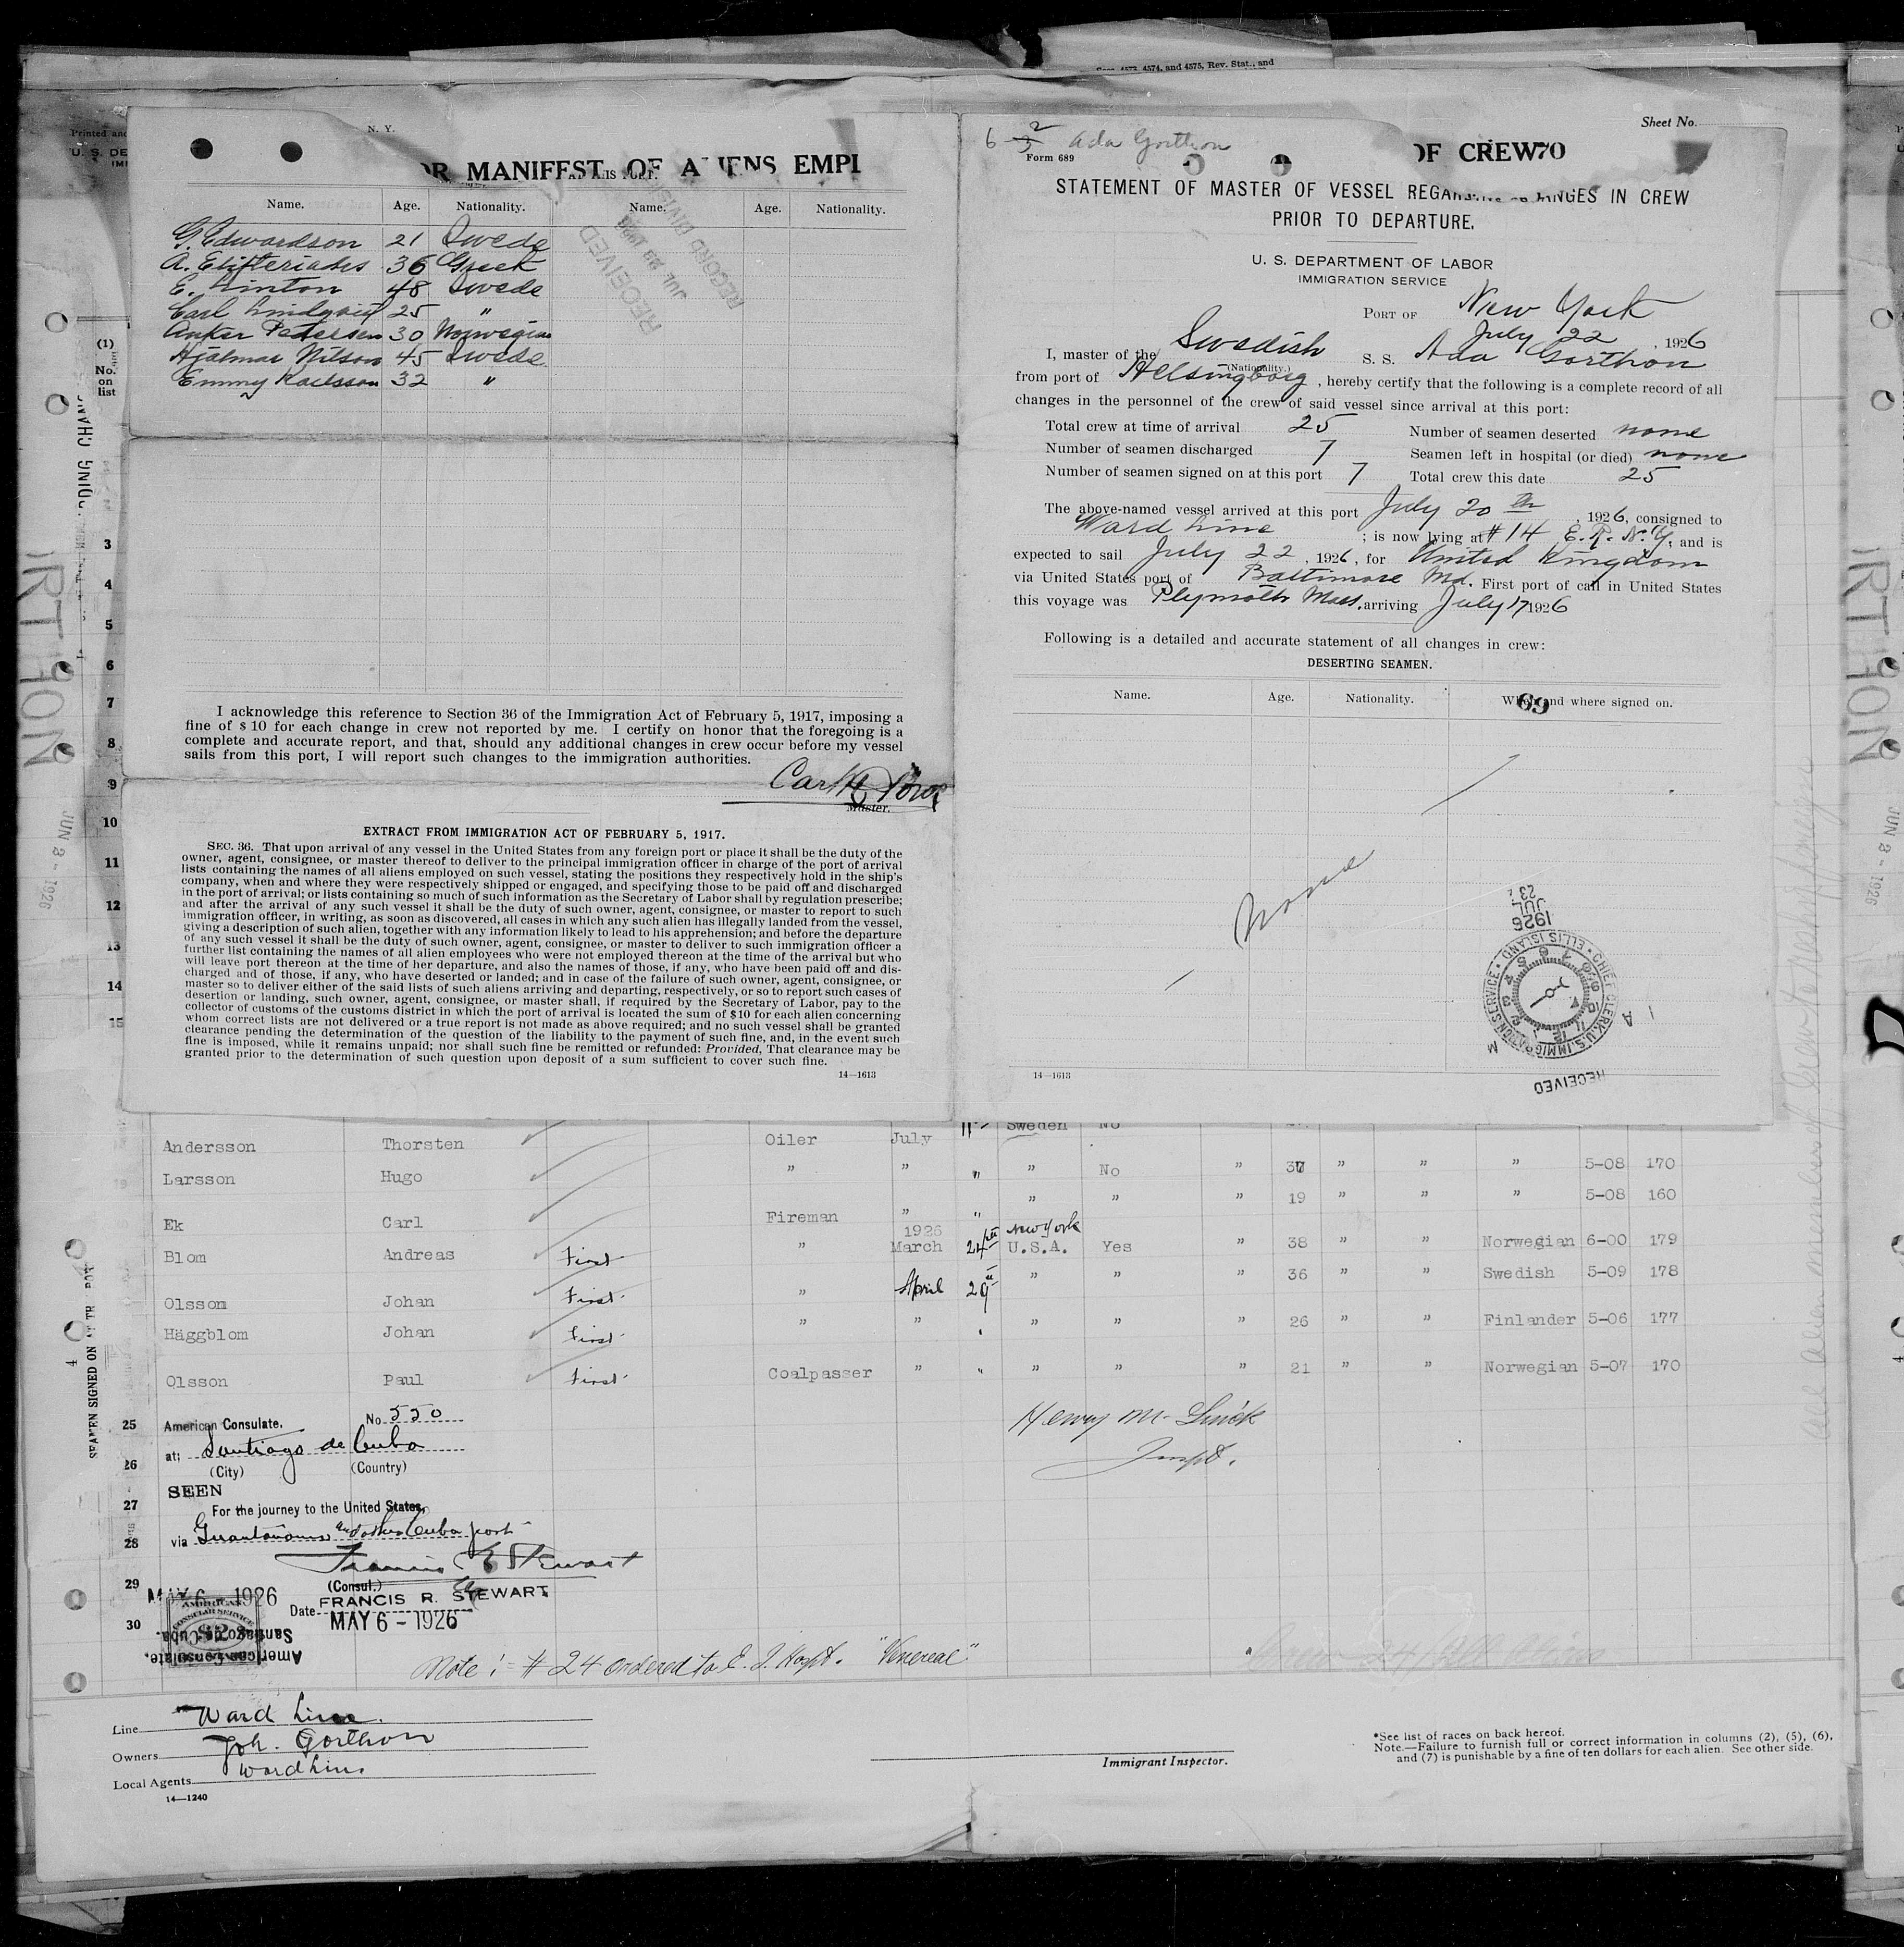 Secs. 4573, 4574, and 4575, Rev. Stat., and
N. Y.
OR MANIFEST OF ALIENS EMPL
Name. Age. Nationality. Name. Age. Nationality.
G. Edwardson 21 Swede
A. Elifteriades 36 Greek
E. Linton 48 Swede
Carl Lindqvist 25 "
Anker Petersen 30 Norwegian
Hjalmar Nilson 45 Swede
Emmy Karlsson 32 "
RECEIVED
JUL 23 1926
RECORD DIVISION
I acknowledge this reference to Section 36 of the Immigration Act of February 5, 1917, imposing a
fine of $10 for each change in crew not reported by me. I certify on honor that the foregoing is a
complete and accurate report, and that, should any additional changes in crew occur before my vessel
sails from this port, I will report such changes to the immigration authorities.
Master.
EXTRACT FROM IMMIGRATION ACT OF FEBRUARY 5, 1917.
SEC. 36. That upon arrival of any vessel in the United States from any foreign port or place it shall be the duty of the
owner, agent, consignee, or master thereof to deliver to the principal immigration officer in charge of the port of arrival
lists containing the names of all aliens employed on such vessel, stating the positions they respectively hold in the ship's
company, when and where they were respectively shipped or engaged, and specifying those to be paid off and discharged
in the port of arrival; or lists containing so much of such information as the Secretary of Labor shall by regulation prescribe;
and after the arrival of any such vessel it shall be the duty of such owner, agent, consignee, or master to report to such
immigration officer, in writing, as soon as discovered, all cases in which any such alien has illegally landed from the vessel,
giving a description of such alien, together with any information likely to lead to his apprehension; and before the departure
of any such vessel it shall be the duty of such owner, agent, consignee, or master to deliver to such immigration officer a
further list containing the names of all alien employees who were not employed thereon at the time of the arrival but who
will leave port thereon at the time of her departure, and also the names of those, if any, who have been paid off and dis-
charged and of those, if any, who have deserted or landed; and in case of the failure of such owner, agent, consignee, or
master so to deliver either of the said lists of such aliens arriving and departing, respectively, or so to report such cases of
desertion or landing, such owner, agent, consignee, or master shall, if required by the Secretary of Labor, pay to the
collector of customs of the customs district in which the port of arrival is located the sum of $10 for each alien concerning
whom correct lists are not delivered or a true report is not made as above required; and no such vessel shall be granted
clearance pending the determination of the question of the liability to the payment of such fine, and, in the event such
fine is imposed, while it remains unpaid; nor shall such fine be remitted or refunded: Provided, That clearance may be
granted prior to the determination of such question upon deposit of a sum sufficient to cover such fine.
14—1613
Sheet No.
6 2 3 Ada Gorthon
Form 689
OF CREW 70
STATEMENT OF MASTER OF VESSEL REGARDING CHANGES IN CREW
PRIOR TO DEPARTURE.
U. S. DEPARTMENT OF LABOR
IMMIGRATION SERVICE
PORT OF New York
July 22, 1926
I, master of the Swedish S. S. Ada Gorthon
(Nationality.)
from port of Helsingborg, hereby certify that the following is a complete record of all
changes in the personnel of the crew of said vessel since arrival at this port:
Total crew at time of arrival 25 Number of seamen deserted none
Number of seamen discharged 7 Seamen left in hospital (or died) none
Number of seamen signed on at this port 7 Total crew this date 25
The above-named vessel arrived at this port July 20th, 1926, consigned to
Ward Line; is now lying at #14 E. R. N.Y., and is
expected to sail July 22, 1926, for United Kingdom
via United States port of Baltimore Md. First port of call in United States
this voyage was Plymoth Mass. arriving July 17 1926
Following is a detailed and accurate statement of all changes in crew:
DESERTING SEAMEN.
Name. Age. Nationality. When and where signed on.
69
None
JUL 23 1926
CHIEF CLERK, U.S. IMMIGRATION SERVICE • ELLIS ISLAND •
RECEIVED
14—1613
(1)
No.
on
list
3
4
5
6
7
8
9
10
11
12
13
14
15
JUN 3 - 1926
Andersson Thorsten Oiler July Sweden No
Larsson Hugo " " " " No " 37 " " " 5-08 170
Ek Carl Fireman " " " " " 19 " " " 5-08 160
Blom Andreas First " 1926 March 24th New York U.S.A. Yes " 38 " " Norwegian 6-00 179
Olsson Johan First " April 29th " " " 36 " " Swedish 5-09 178
Häggblom Johan First " " " " " " 26 " " Finlander 5-06 177
Olsson Paul First Coalpasser " " " " " 21 " " Norwegian 5-07 170
25
26
27
28
29
30
American Consulate. No 550
at: Santiago de Cuba
(City) (Country)
SEEN
For the journey to the United States,
via Guantanamo and other Cuba port
Francis R Stewart
(Consul.)
FRANCIS R. STEWART
Date MAY 6 - 1926
MAY 6 - 1926
AMERICAN CONSULAR SERVICE
American Consulate.
Santiago de Cuba.
Inspt.
Note:- #24 ordered to E. I. Hospt. "Venereal"
Line Ward Line.
Owners Joh. Gorthon
Local Agents Ward Line
14—1240
Immigrant Inspector.
*See list of races on back hereof.
Note.—Failure to furnish full or correct information in columns (2), (5), (6),
and (7) is punishable by a fine of ten dollars for each alien. See other side.